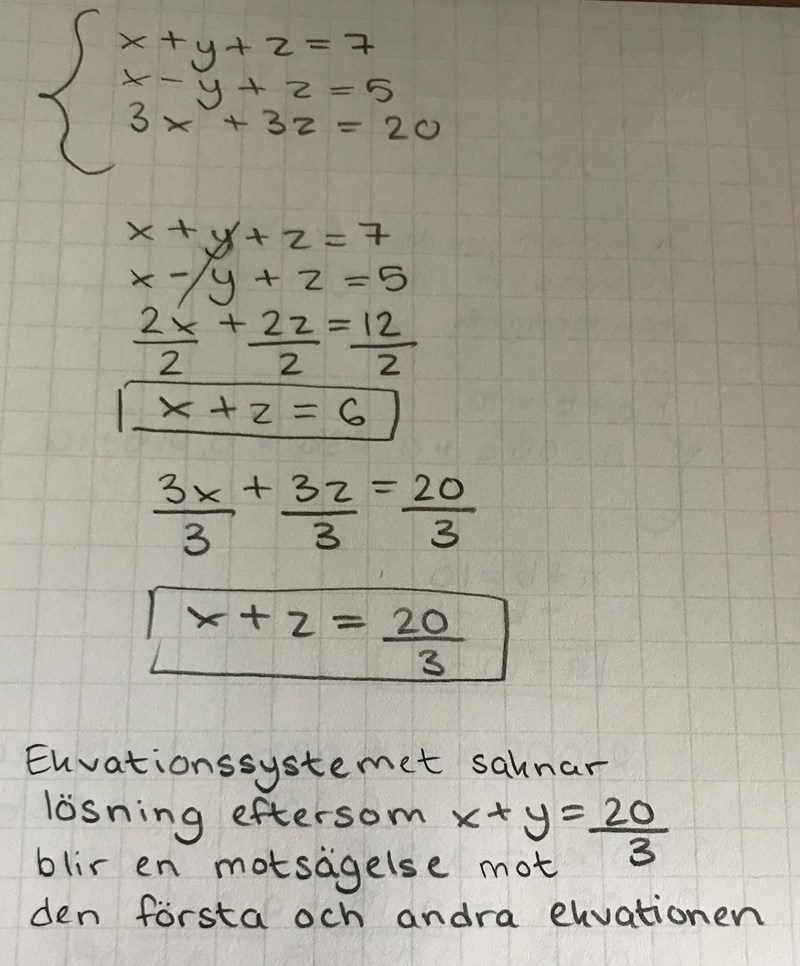 x + y + z = 7
x - y + z = 5
3x + 3z = 20
x + y + z = 7
x - y + z = 5
2x/2 + 2z/2 = 12/2
x + z = 6
3x/3 + 3z/3 = 20/3
x + z = 20/3
Ekvationssystemet saknar
lösning eftersom x + y = 20/3
blir en motsägelse mot
den första och andra ekvationen